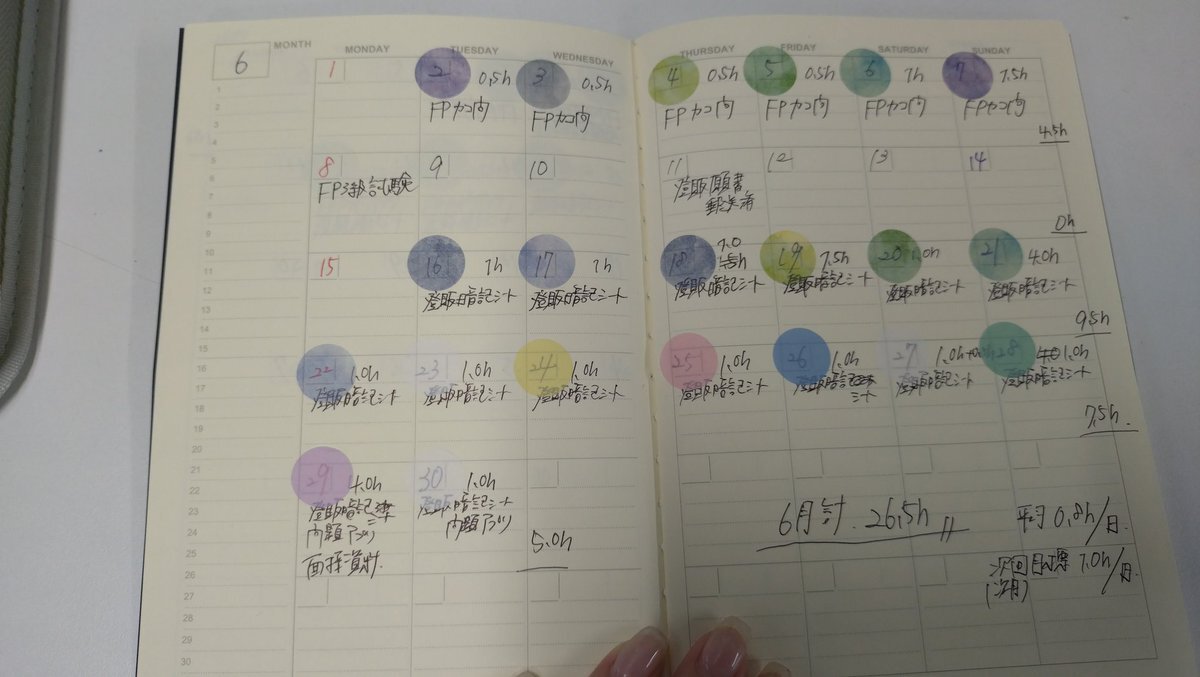 6
MONTH
MONDAY
TUESDAY
WEDNESDAY
THURSDAY
FRIDAY
SATURDAY
SUNDAY
1
2 0.5h
FP過去問
3 0.5h
4 0.5h
5 0.5h
6 1h
7 1.5h
4.5h
8
FP3級試験
9
10
11
登販願書
郵送済
12
13
14
0h
15
16 1h
登販暗記シート
17 1h
登販暗記シート
18 1.0
登販暗記シート
19 1.5h
登販暗記シート
20 1.0h
登販暗記シート
21 4.0h
登販暗記シート
9.5h
22 1.0h
登販暗記シート
23 1.0h
登販暗記シート
24 1.0h
登販暗記シート
25 1.0h
登販暗記シート
26 1.0h
登販暗記
シート
27 1.0h
登販暗記シート
28 1.0h
登販暗記シート
7.5h
29 4.0h
登販暗記
問題アプリ
面接資料
30 1.0h
登販暗記シート
問題アプリ
5.0h
6月計 26.5h
平均 0.8h/日
次回目標 1.0h/日
1
2
3
4
5
6
7
8
9
10
11
12
13
14
15
16
17
18
19
20
21
22
23
24
25
26
27
28
29
30